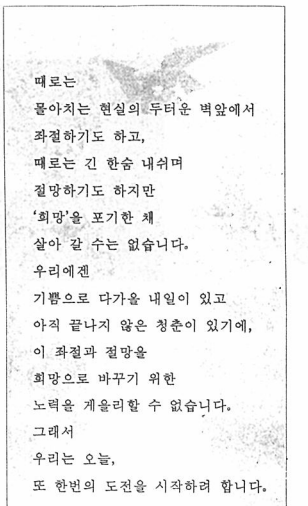 때로는
몰아치는 현실의 두터운 벽앞에서
좌절하기도 하고,
때로는 긴 한숨 내쉬며
절망하기도 하지만
‘희망’을 포기한 채
살아 갈 수는 없습니다.
우리에겐
기쁨으로 다가올 내일이 있고
아직 끝나지 않은 청춘이 있기에,
이 좌절과 절망을
희망으로 바꾸기 위한
노력을 게을리할 수 없습니다.
그래서
우리는 오늘,
또 한번의 도전을 시작하려 합니다.